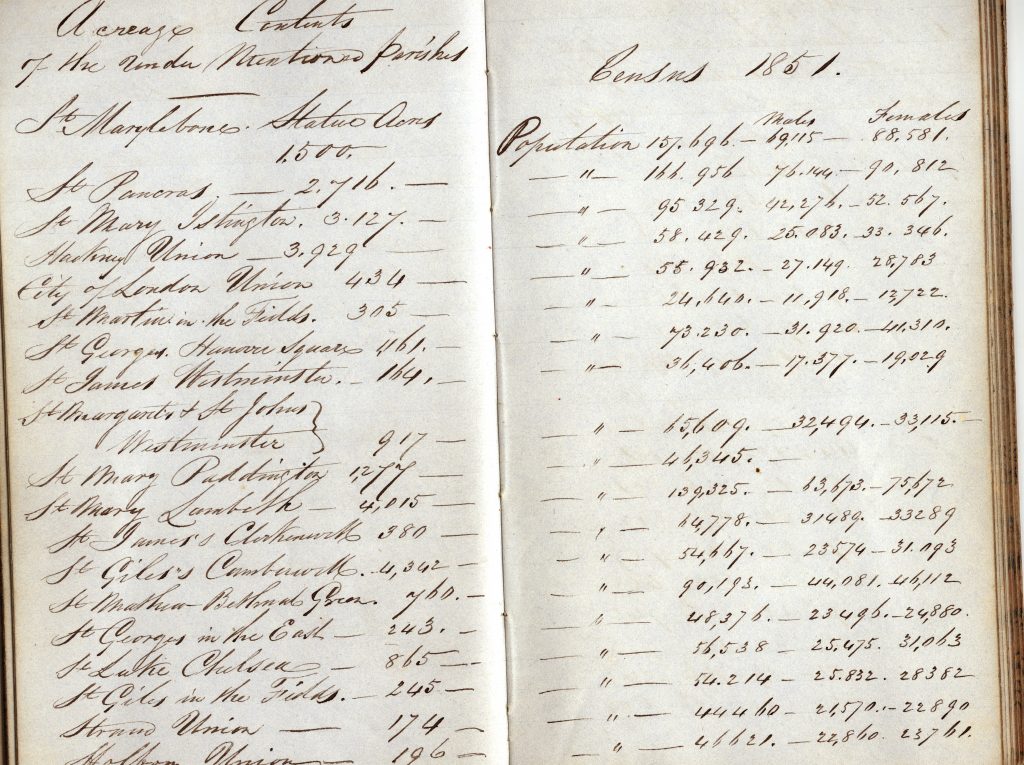 Acreage Contents
of the under Mentioned Parishes
St Marylebone. Statue Acres
1.500.
St Pancras — 2.716. —
St Mary Islington. 3.127. —
Hackney Union — 3.929 —
City of London Union 434 —
St Martin in the Fields. 305 —
St Georges. Hanover Square 1161. —
St James Westminster. — 164. —
St Margarets & St Johns
Westminster } 917 —
St Mary Paddington 1,277 —
St Mary Lambeth — 4,015 —
St James's Clerkenwell 380 —
St Giles's Camberwell. 4,342 —
St Mathew Bethnal Green. 760. —
St Georges in the East — 243. —
St Luke Chelsea — 865 —
St Giles in the Fields. — 245 —
Strand Union — 174 —
Holborn Union — 196 —
Census 1851.
Males Females
Population 157.696. — 69,115 — 88,581.
— " — 166.956 76.144. — 90,812
— " — 95 329. 42,276. — 52.567.
— " — 58.429. 25.083. — 33.346.
— " — 55.932. — 27.149. 28,783
— " — 24,640. — 11,918. — 12,722.
— " — 73.230. — 31.920. — 41.310.
— " — 36,406. — 17.377. — 19,029
— " — 65,609. — 32,494. — 33,115. —
— " — 46,345. —
— " — 139,325. — 63,673. — 75,672
— " — 64,778. — 31489. — 33289
— " — 54,667. — 23574 — 31.093
— " — 90,193. — 44,081. 46,112
— " — 48,376. — 23 496. — 24,880.
— " — 56,538 — 25,475. 31,063
— " — 54.214 — 25.832. 28382
— " — 44460 — 21,570. — 22890
— " — 46621. — 22,860. 23,761.